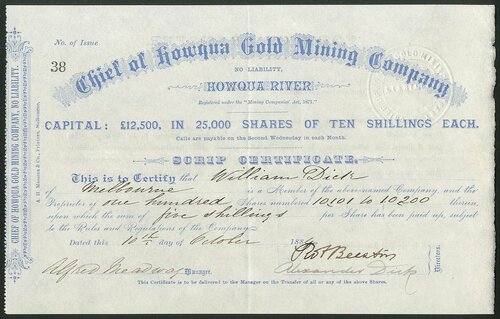 No. of Issue
38
Chief of Howqua Gold Mining Company
NO LIABILITY.
HOWQUA RIVER
Registered under the "Mining Companies' Act, 1871."
CAPITAL: £12,500, IN 25,000 SHARES OF TEN SHILLINGS EACH.
Calls are payable on the Second Wednesday in each Month.
SCRIP CERTIFICATE.
This is to Certify that William Dick
of Melbourne is a Member of the above-named Company, and the
Proprietor of one hundred Shares numbered 10101 to 10200 therein,
upon which the sum of five shillings per Share has been paid up, subject
to the Rules and Regulations of the Company.
Dated this 10th day of October 188
Robt Beeston
Alfred Manager.
Alexander Dick
Directors.
This Certificate is to be delivered to the Manager on the Transfer of all or any of the above Shares.
CHIEF OF HOWQUA GOLD MINING COMPANY, NO LIABILITY.
& Co., Printers, Melbourne.